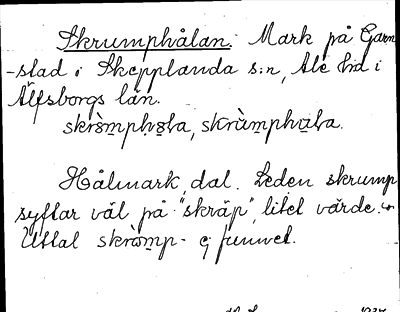 Skrumphålan. Mark på Garn
-stad i Skepplanda s:n, Ale hd i
Älfsborgs län.
skròmphola, skrùmphula.
Hålmark, dal. Leden skrump
syftar väl på "skräp", litet värde.
Uttal skròmp- ej funnet.